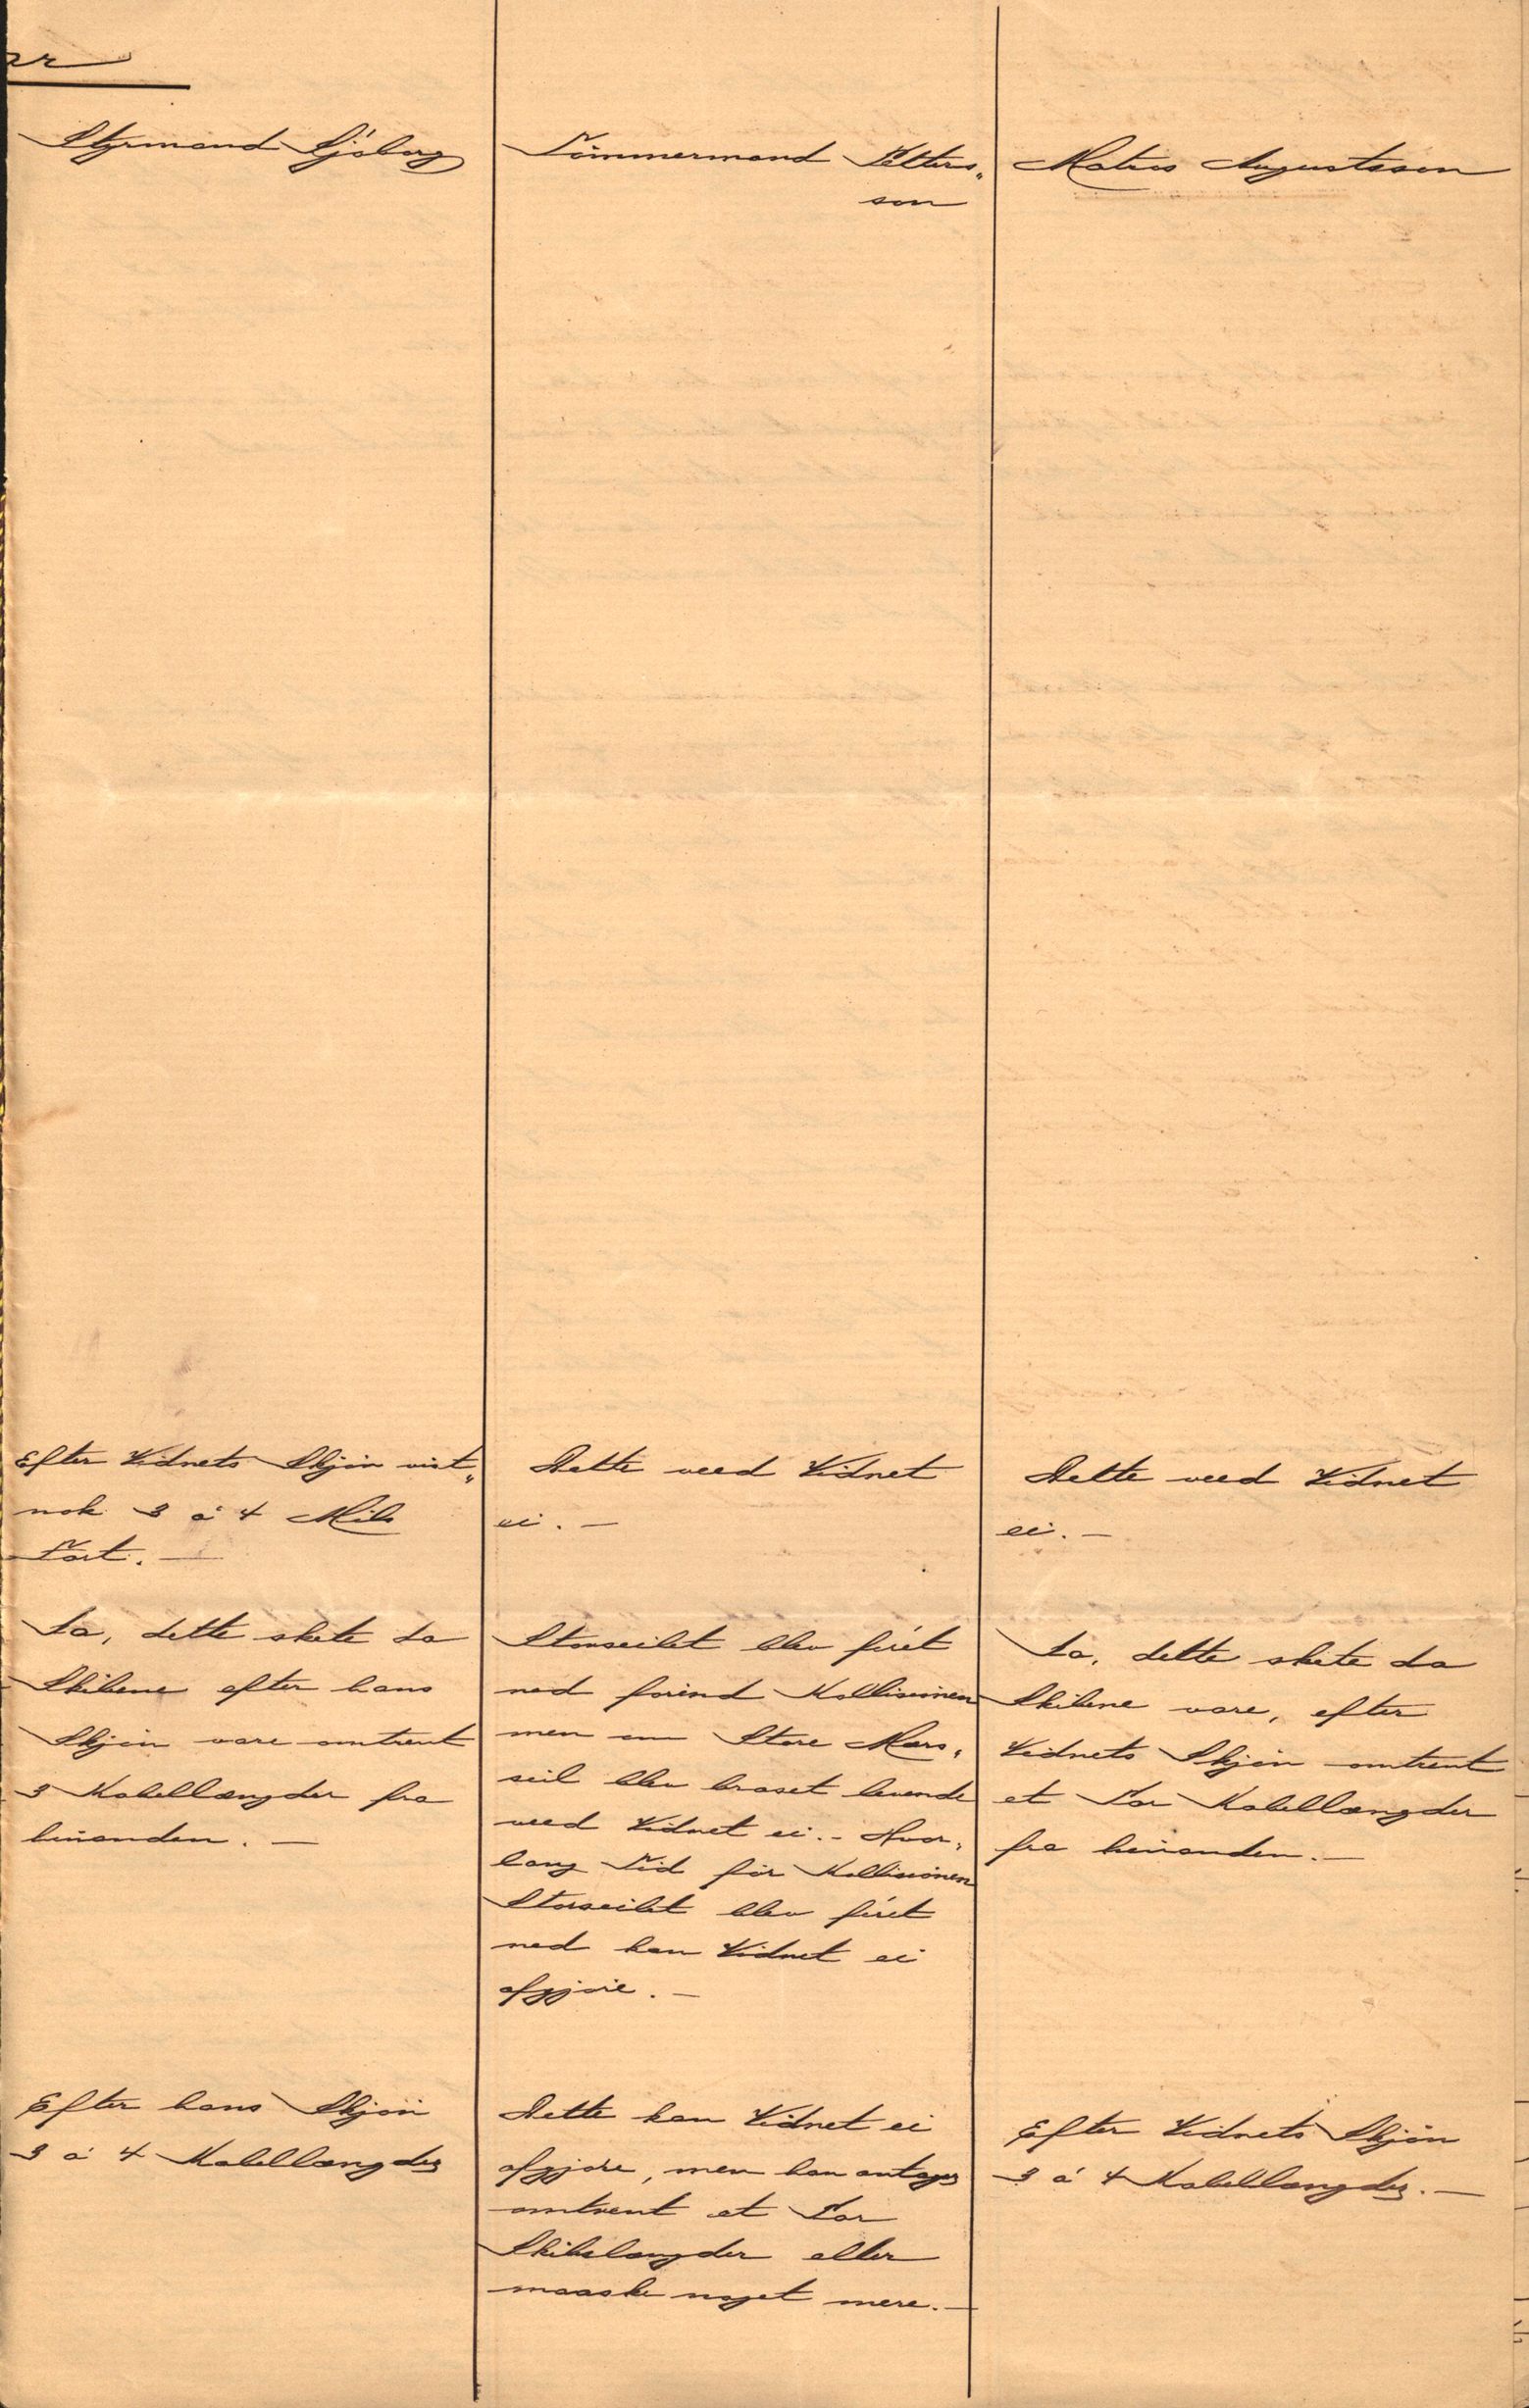 ar
Styrmand Sjöberg
Efter Vidnets Skjøn vist„
nok 3 à 4 Mils
Fart. —
Ja, dette skete da
Skibene efter hans
Skjøn vare omtrent
3 Kabellængder fra
hinanden. —
Efter hans Skjøn
3 à 4 Kabellængder
Tömmermand Petters„
son
Dette veed Vidnet
ei. —
Storseilet blev firet
ned forind Kollisionen
men om Store Mers„
seil blev braset levende
veed Vidnet ei. - Hvor„
lang Tid før Kollisionen
Storseilet blev firet
ned kan Vidnet ei
afgjøre. —
Dette kan Vidnet ei
afgjøre, men han antager
omtrent et Par
Skibslængder eller
maaske noget mere. —
Matros Augustsson
Dette veed Vidnet
ei. —
Ja, dette skete da
Skibene vare, efter
Vidnets Skjøn omtrent
et Par Kabellængder
fra hinanden. —
Efter Vidnets Skjøn
3 à 4 Kabellængder. —